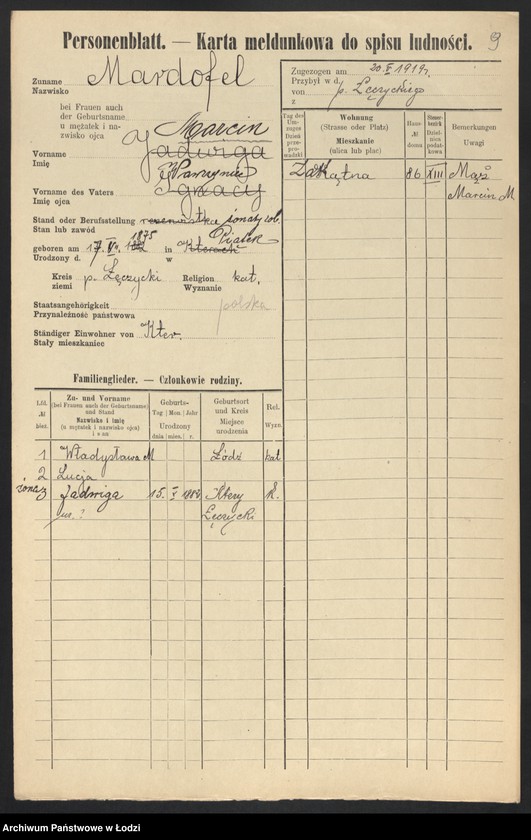 9
Personenblatt. — Karta meldunkowa do spisu ludności.
Zuname
Nazwisko
Mardofel
bei Frauen auch
der Geburtsname
u mężatek i na-
zwisko ojca
Marcin
Vorname
Imię
Jadwiga
Wawrzyniec
Vorname des Vaters
Imię ojca
Ignacy
Stand oder Berufsstellung
Stan lub zawód
żonaty rob.
1875
Piątek
geboren am 17. in
Urodzony d. w
Kreis
ziemi
p. Łęczycki
Religion
Wyznanie
kat.
Staatsangehörigkeit
Przynależność państwowa
polska
Ständiger Einwohner von
Stały mieszkaniec
Kter.
Zugezogen am
Przybył w d.
20. 1919 r.
von
z
p. Łęczyckiego
Tag des Um-
zuges
Dzień
prze-
pro-
wadzki
Wohnung
(Strasse oder Platz)
Mieszkanie
(ulica lub plac)
Haus-
№
domu
Steuer-
bezirk
Dziel-
nica
podat-
kowa
Bemerkungen
Uwagi
Zakątna 86 XIII Mąż
Marcin M
Familienglieder. — Członkowie rodziny.
Lfd.
№
bież.
Zu- und Vorname
(bei Frauen auch der Geburtsname)
und Stand
Nazwisko i imię
(u mężatek i nazwisko ojca)
i stan
Geburts-
Tag Mon. Jahr
Urodzony
dnia mies. r.
Geburtsort
und Kreis
Miejsce
urodzenia
Rel.
Wyzn.
1 Władysława M Łódź kat
2 Łucja
żona 3 Jadwiga 15. Ktery K.
ur. ? Łęczycki
Archiwum Państwowe w Łodzi